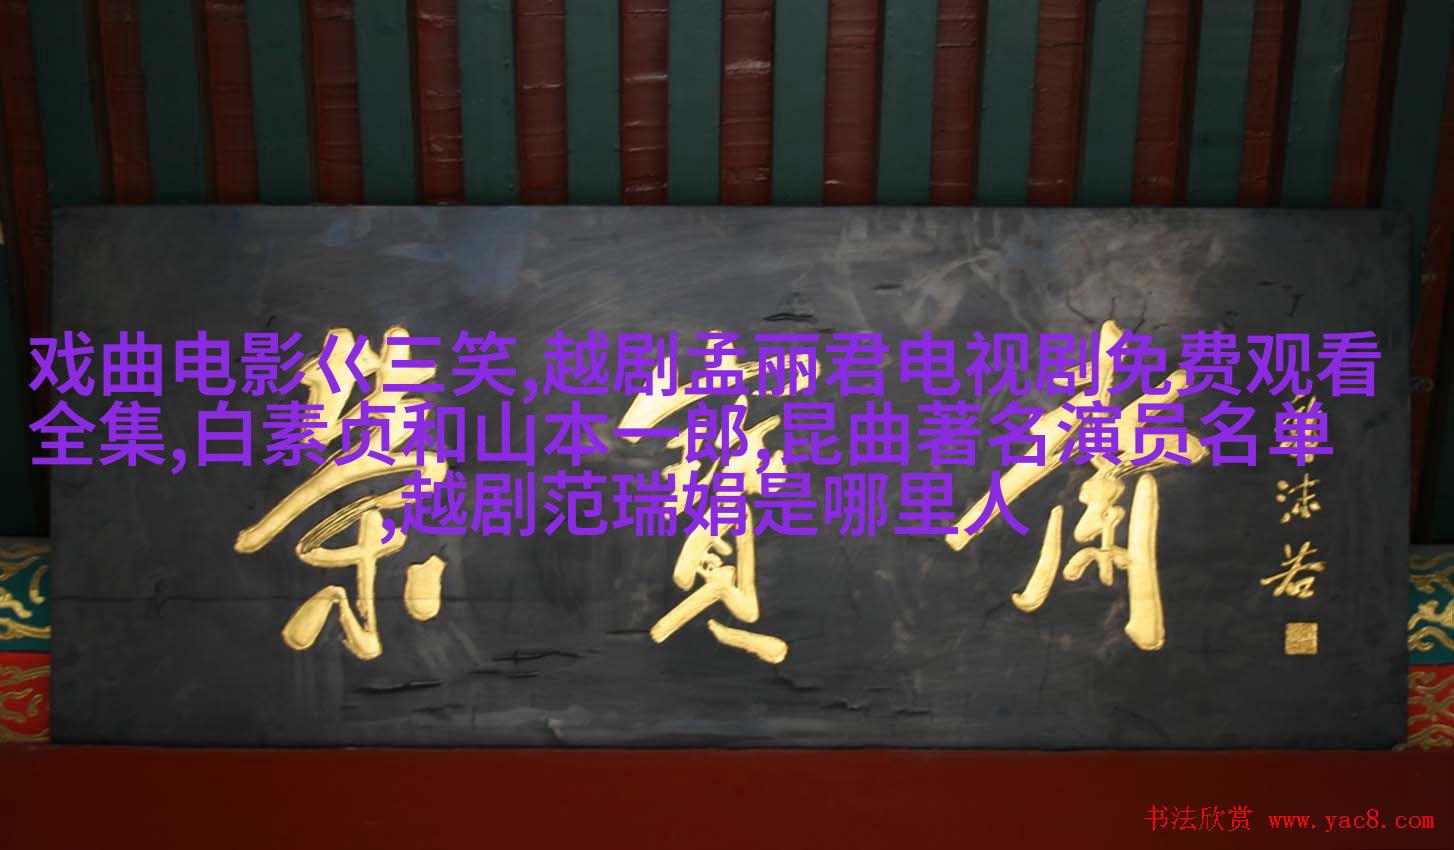 戏曲电影巜三笑,越剧孟丽君电视剧免费观看
全集,白素贞和山本一郎,昆曲著名演员名单
,越剧范瑞娟是哪里人
荣宝斋
沫若
书法欣赏 www.yac8.com